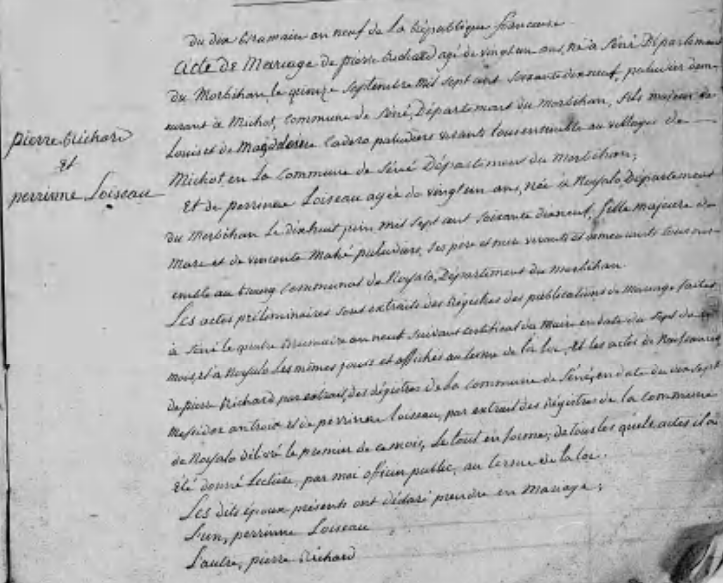 du dix brumaire an neuf de la république francaise
Acte de Mariage de pierre Richard agé de vingt un ans, né à Séné Département
du Morbihan le quinze Septembre mil sept cent soixante dixneuf, paludier dem-
eurant à Michot, commune de Séné, Département du Morbihan, fils majeur de
Louis et de Magdeleine Cadero paludiers vivants tous ensemble au village de
Michot en la commune de Séné Département du Morbihan;
Et de perrinne Loiseau agée de vingt un ans, née à Noyalo Département
du Morbihan le dixhuit juin mil sept cent soixante dixneuf, fille majeure de
Marc et de vincente Mahé paludiers, ses pere et mere vivants et demeurants tous ens-
emble au bourg communal de Noyalo, Département du morbihan.
Les actes préliminaires sont extraits des Régistres des publications de mariage faites
à Séné le quatre brumaire an neuf suivant certificat du Maire en date du sept de ce
mois, et à Noyalo les mêmes jours et affichés au terme de la loi, et les actes de Naissances
de pierre Richard par extrait des régistres de la commune de Séné, en date du sept
Messidor an trois et de perrinne loiseau, par extrait des régistres de la commune
de Noyalo délivré le premier de ce mois, le tout en forme; de tous les quels actes il a
été donné lecture, par moi officier public, au terme de la loi.
Les dits époux présents ont déclaré prendre en mariage;
L'un, perrinne Loiseau
L'autre, pierre Richard
pierre Richard
et
perrinne Loiseau